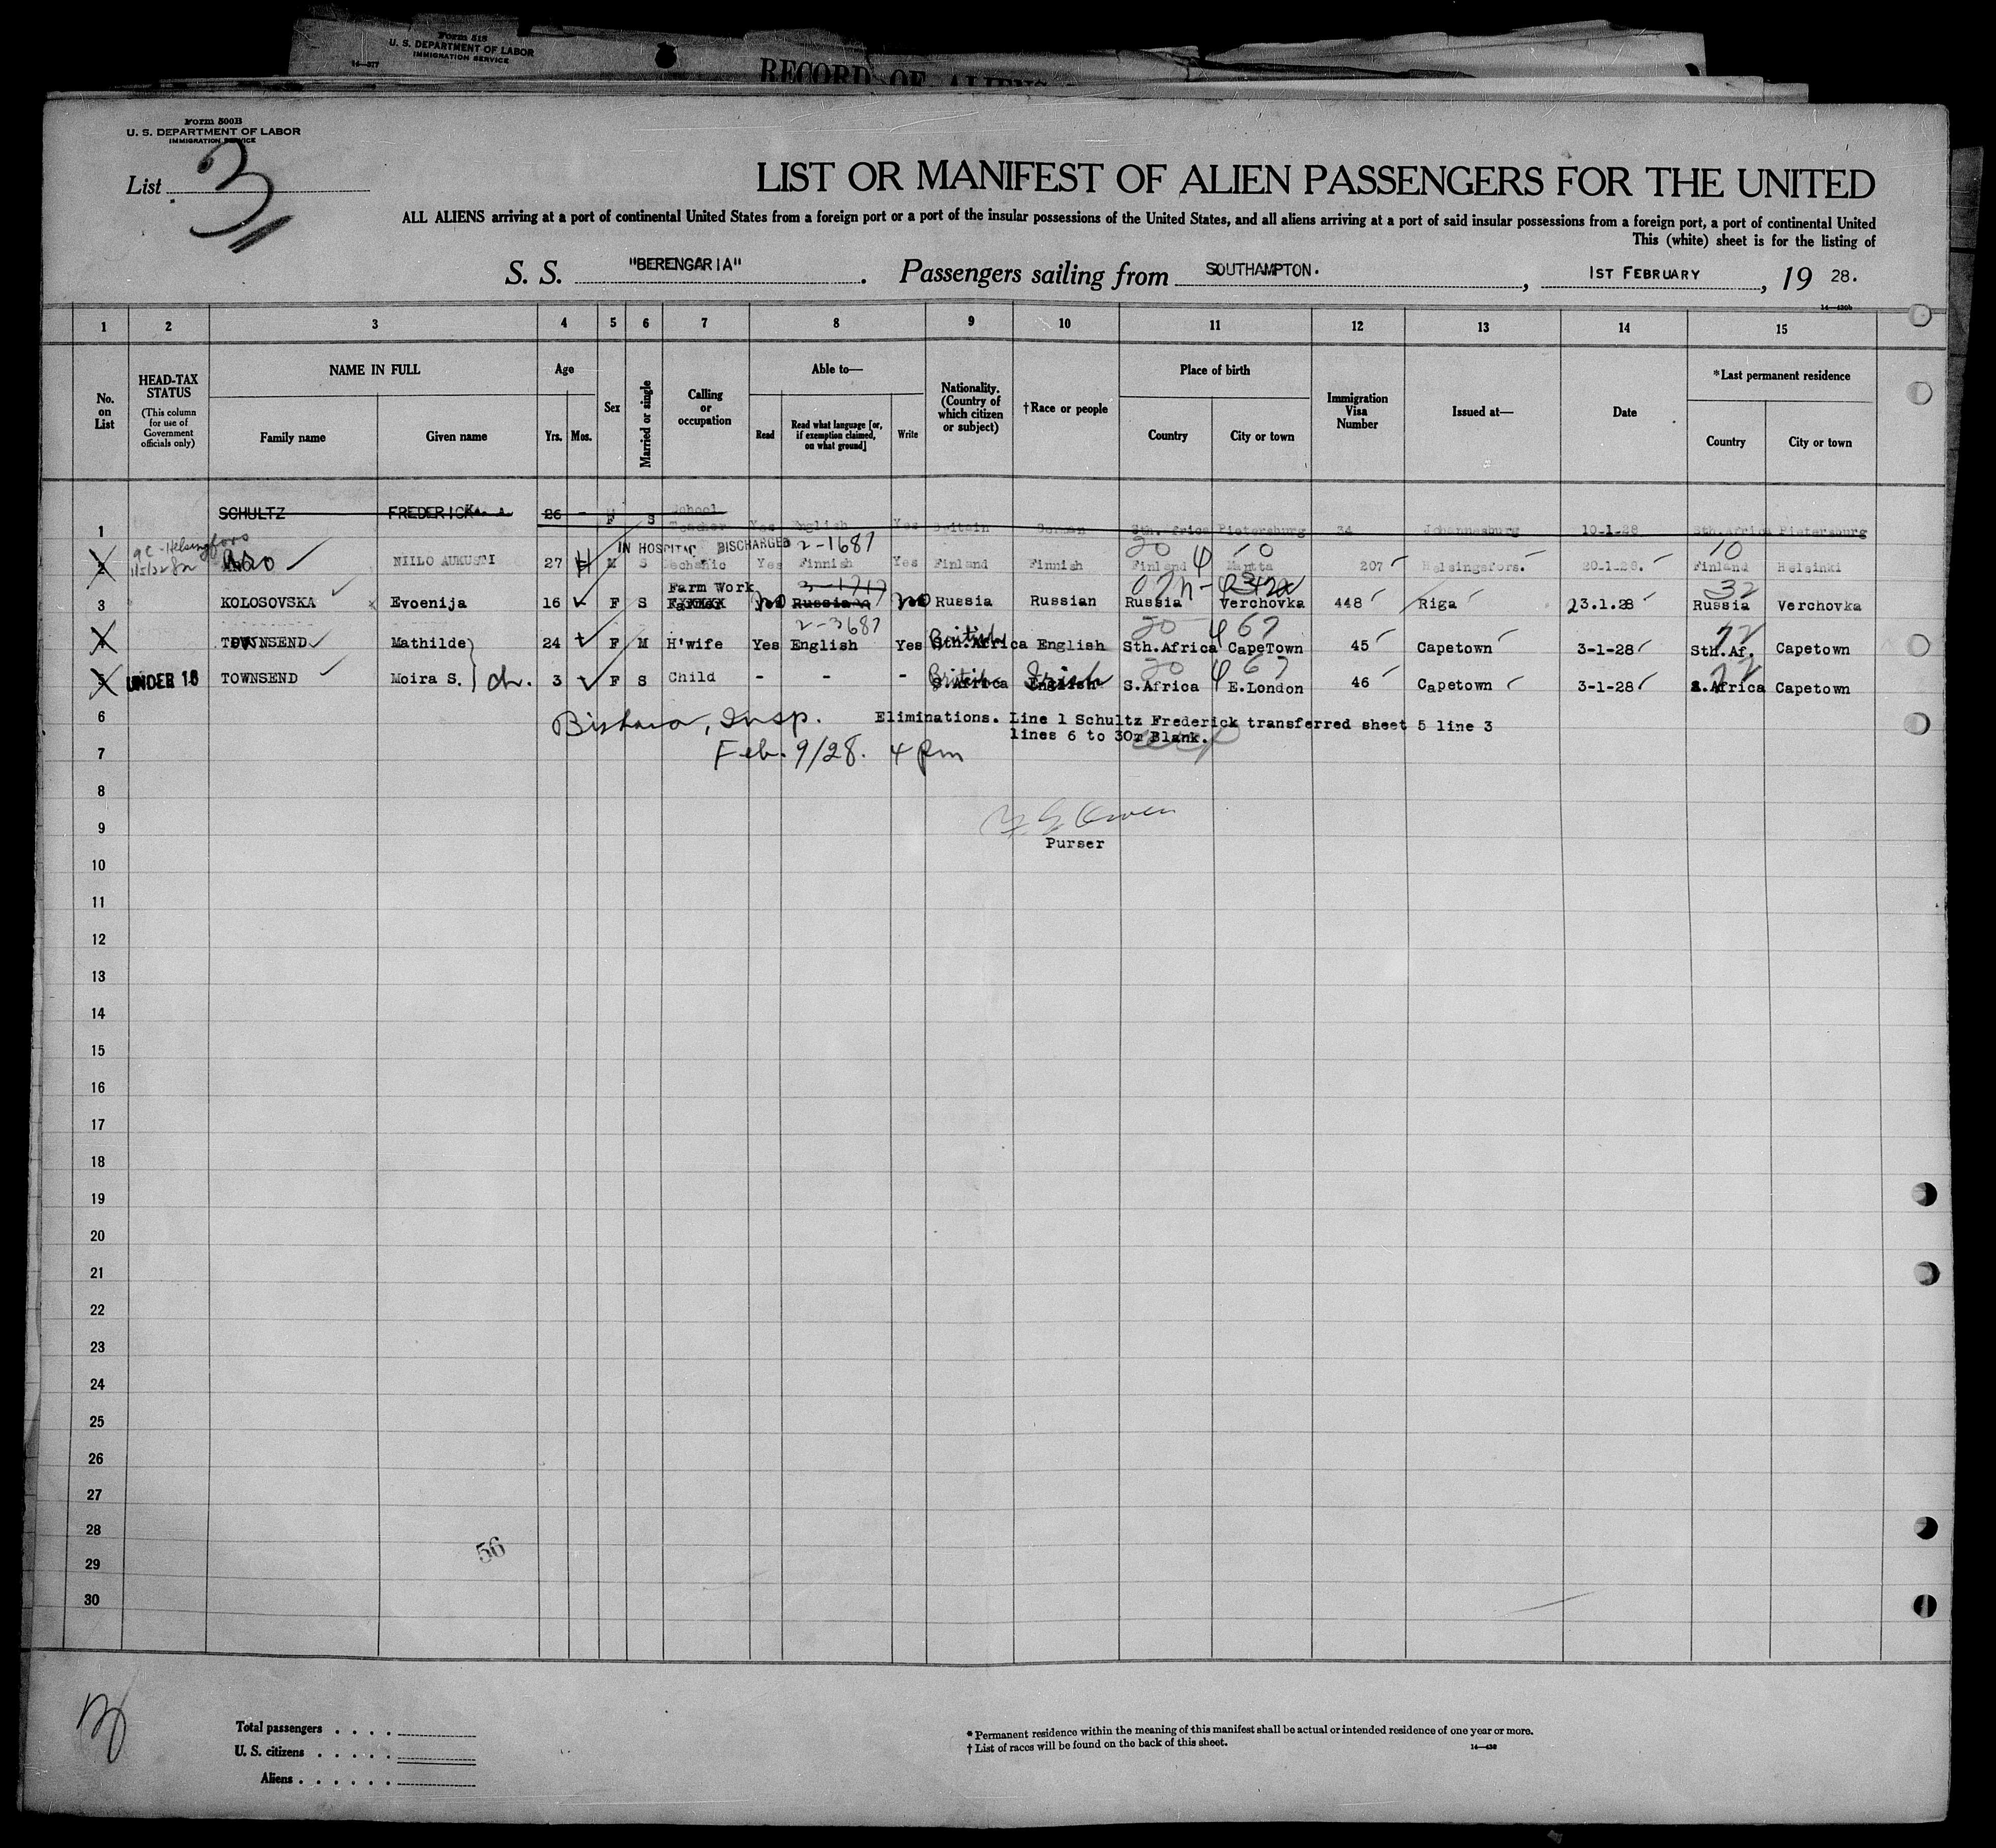 Form 518
U. S. DEPARTMENT OF LABOR
IMMIGRATION SERVICE
14-377
RECORD OF ALIENS
Form 500B
U. S. DEPARTMENT OF LABOR
IMMIGRATION SERVICE
List 3
LIST OR MANIFEST OF ALIEN PASSENGERS FOR THE UNITED
ALL ALIENS arriving at a port of continental United States from a foreign port or a port of the insular possessions of the United States, and all aliens arriving at a port of said insular possessions from a foreign port, a port of continental United
This (white) sheet is for the listing of
S. S. "BERENGARIA". Passengers sailing from SOUTHAMPTON. , 1ST FEBRUARY , 19 28.
1 2 3 4 5 6 7 8 9 10 11 12 13 14 15
No. on List
HEAD-TAX STATUS
(This column for use of Government officials only)
NAME IN FULL
Family name Given name
Age
Yrs. Mos.
Sex
Married or single
Calling or occupation
Able to—
Read
Read what language [or, if exemption claimed, on what ground]
Write
Nationality. (Country of which citizen or subject)
†Race or people
Place of birth
Country City or town
Immigration Visa Number
Issued at—
Date
*Last permanent residence
Country City or town
1 SCHULTZ FREDERICK 26 - F S School Teacher Yes English Yes Britain German Sth. Africa Pietersburg 34 Johannesburg 10-1-28 Sth. Africa Pietersburg
IN HOSPITAL DISCHARGED 2-1687 20 10 10
2 NIILO AUKUSTI 27 M S Mechanic Yes Finnish Yes Finland Finnish Finland Mantta 207 Helsingsfors. 20-1-28. Finland Helsinki
Farm Work 3-1717 32
3 KOLOSOVSKA Evoenija 16 - F S no Russian no Russia Russian Russia Verchovka 448 Riga 23.1.28 Russia Verchovka
2-3687 20 67 72
4 TOWNSEND Mathilde 24 F M H'wife Yes English Yes British Sth.Africa English Sth.Africa CapeTown 45 Capetown 3-1-28 Sth.Af. Capetown
20 67 72
5 UNDER 16 TOWNSEND Moira S. ch. 3 - F S Child - - - British S.Africa Irish English S.Africa E.London 46 Capetown 3-1-28 S.Africa Capetown
6 Insp. Eliminations. Line 1 Schultz Frederick transferred sheet 5 line 3
lines 6 to 30 Blank.
7 Feb. 9/28. 4 pm
8
9 Owen
Purser
10
11
12
13
14
15
16
17
18
19
20
21
22
23
24
25
26
27
28
56
29
30
Total passengers . . . .
U. S. citizens . . . . .
Aliens . . . . . .
* Permanent residence within the meaning of this manifest shall be actual or intended residence of one year or more.
† List of races will be found on the back of this sheet.
14-430